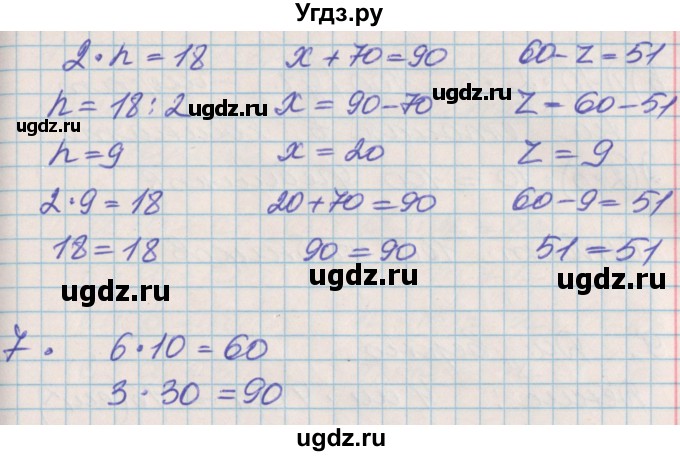 Угдз.ру
2 · n = 18 x + 70 = 90 60 - z = 51
n = 18 : 2 x = 90 - 70 z = 60 - 51
n = 9 x = 20 z = 9
2 · 9 = 18 20 + 70 = 90 60 - 9 = 51
18 = 18 90 = 90 51 = 51
7. 6 · 10 = 60
3 · 30 = 90
ugdz.ru
ugdz.ru
ugdz.ru
ugdz.ru
ugdz.ru
ugdz.ru
ugdz.ru
ugdz.ru
ugdz.ru